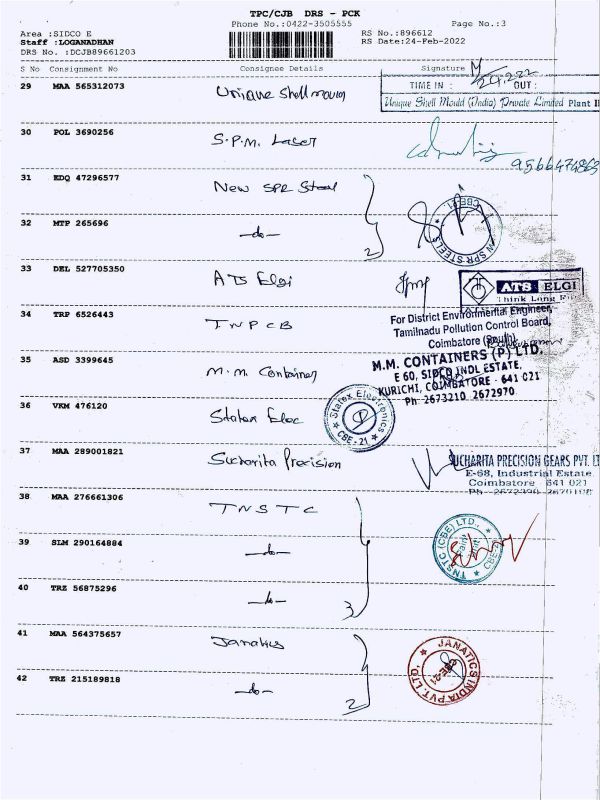 TPC/CJB DRS - PCK
Phone No.:0422-3505555 Page No.:3
Area :SIDCO E RS No.:896612
Staff :LOGANADHAN RS Date:24-Feb-2022
DRS No. :DCJB89661203
S No Consignment No Consignee Details Signature
29 MAA 565312073 Unique Shell mould
TIME IN : OUT :
Unique Shell Mould (India) Private Limited Plant II
30 POL 3690256 S.P.M. Laser
31 EDQ 47296577 New SPR Steel
32 MTP 265696 -do- 2
CBE-21
SPR STEELS
33 DEL 527705350 ATS Elgi
ATS ELGI
Think Long
For District Environmental Engineer,
Tamilnadu Pollution Control Board,
Coimbatore (South).
34 TRP 6526443 TNPCB
35 ASD 3399645 M.M. Container
M.M. CONTAINERS (P) LTD,
E 60, SIDCO INDL ESTATE,
KURICHI, COIMBATORE - 641 021
Ph 2673210 2672970
36 VKM 476120 Statex Elec
Statex Electronics
CBE-21
37 MAA 289001821 Sucharita Precision
SUCHARITA PRECISION GEARS PVT. LT
E-68, Industrial Estate
Coimbatore 641 021
38 MAA 276661306 TNSTC
39 SLM 290164884 -do-
TNSTC (CBE) LTD.,
40 TRZ 56875296 -do- 3
41 MAA 564375657 Janatics
42 TRZ 215189818 -do- 2
JANATICS INDIA PVT. LTD.